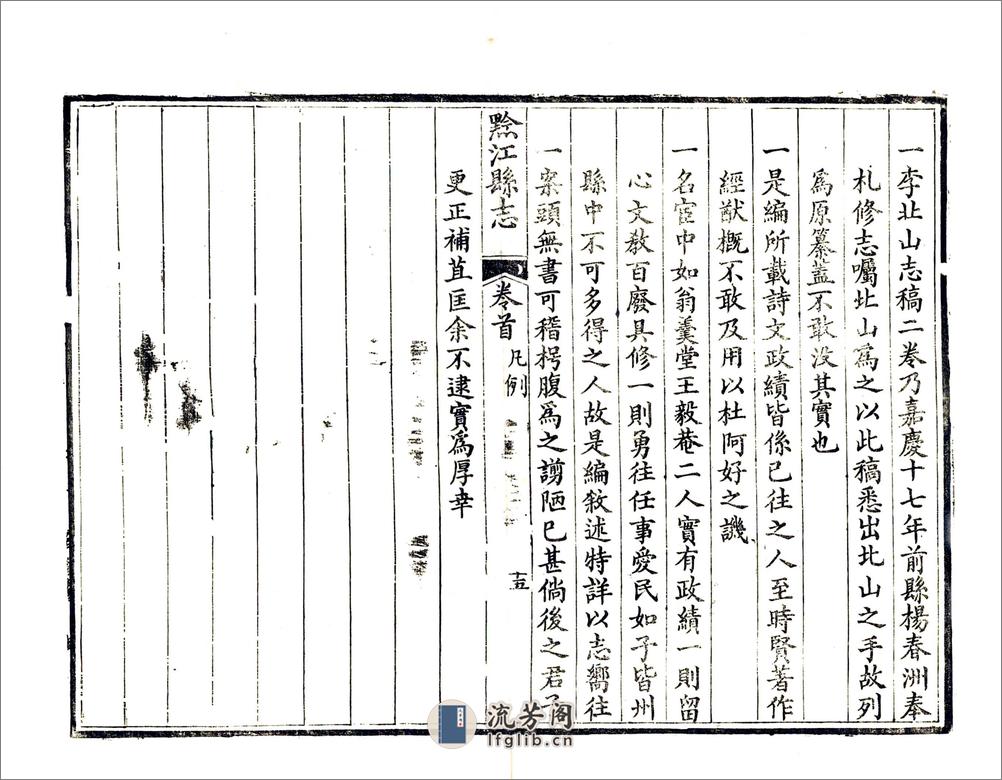 一李北山志稿二卷乃嘉慶十七年前縣楊春洲奉
札修志囑北山爲之以此稿悉出北山之手故列
爲原纂蓋不敢没其實也
一是編所載詩文政績皆係已往之人至時賢著作
經猷概不敢及用以杜阿好之譏
一名宦中如翁羹堂王毅菴二人實有政績一則留
心文教百廢具修一則勇往任事愛民如子皆州
縣中不可多得之人故是編敘述特詳以志嚮往
一案頭無書可稽枵腹爲之謭陋已甚倘後之君子
黔江縣志 卷首 凡例 十五
更正補苴匡余不逮實爲厚幸
流芳阁
lfglib.cn